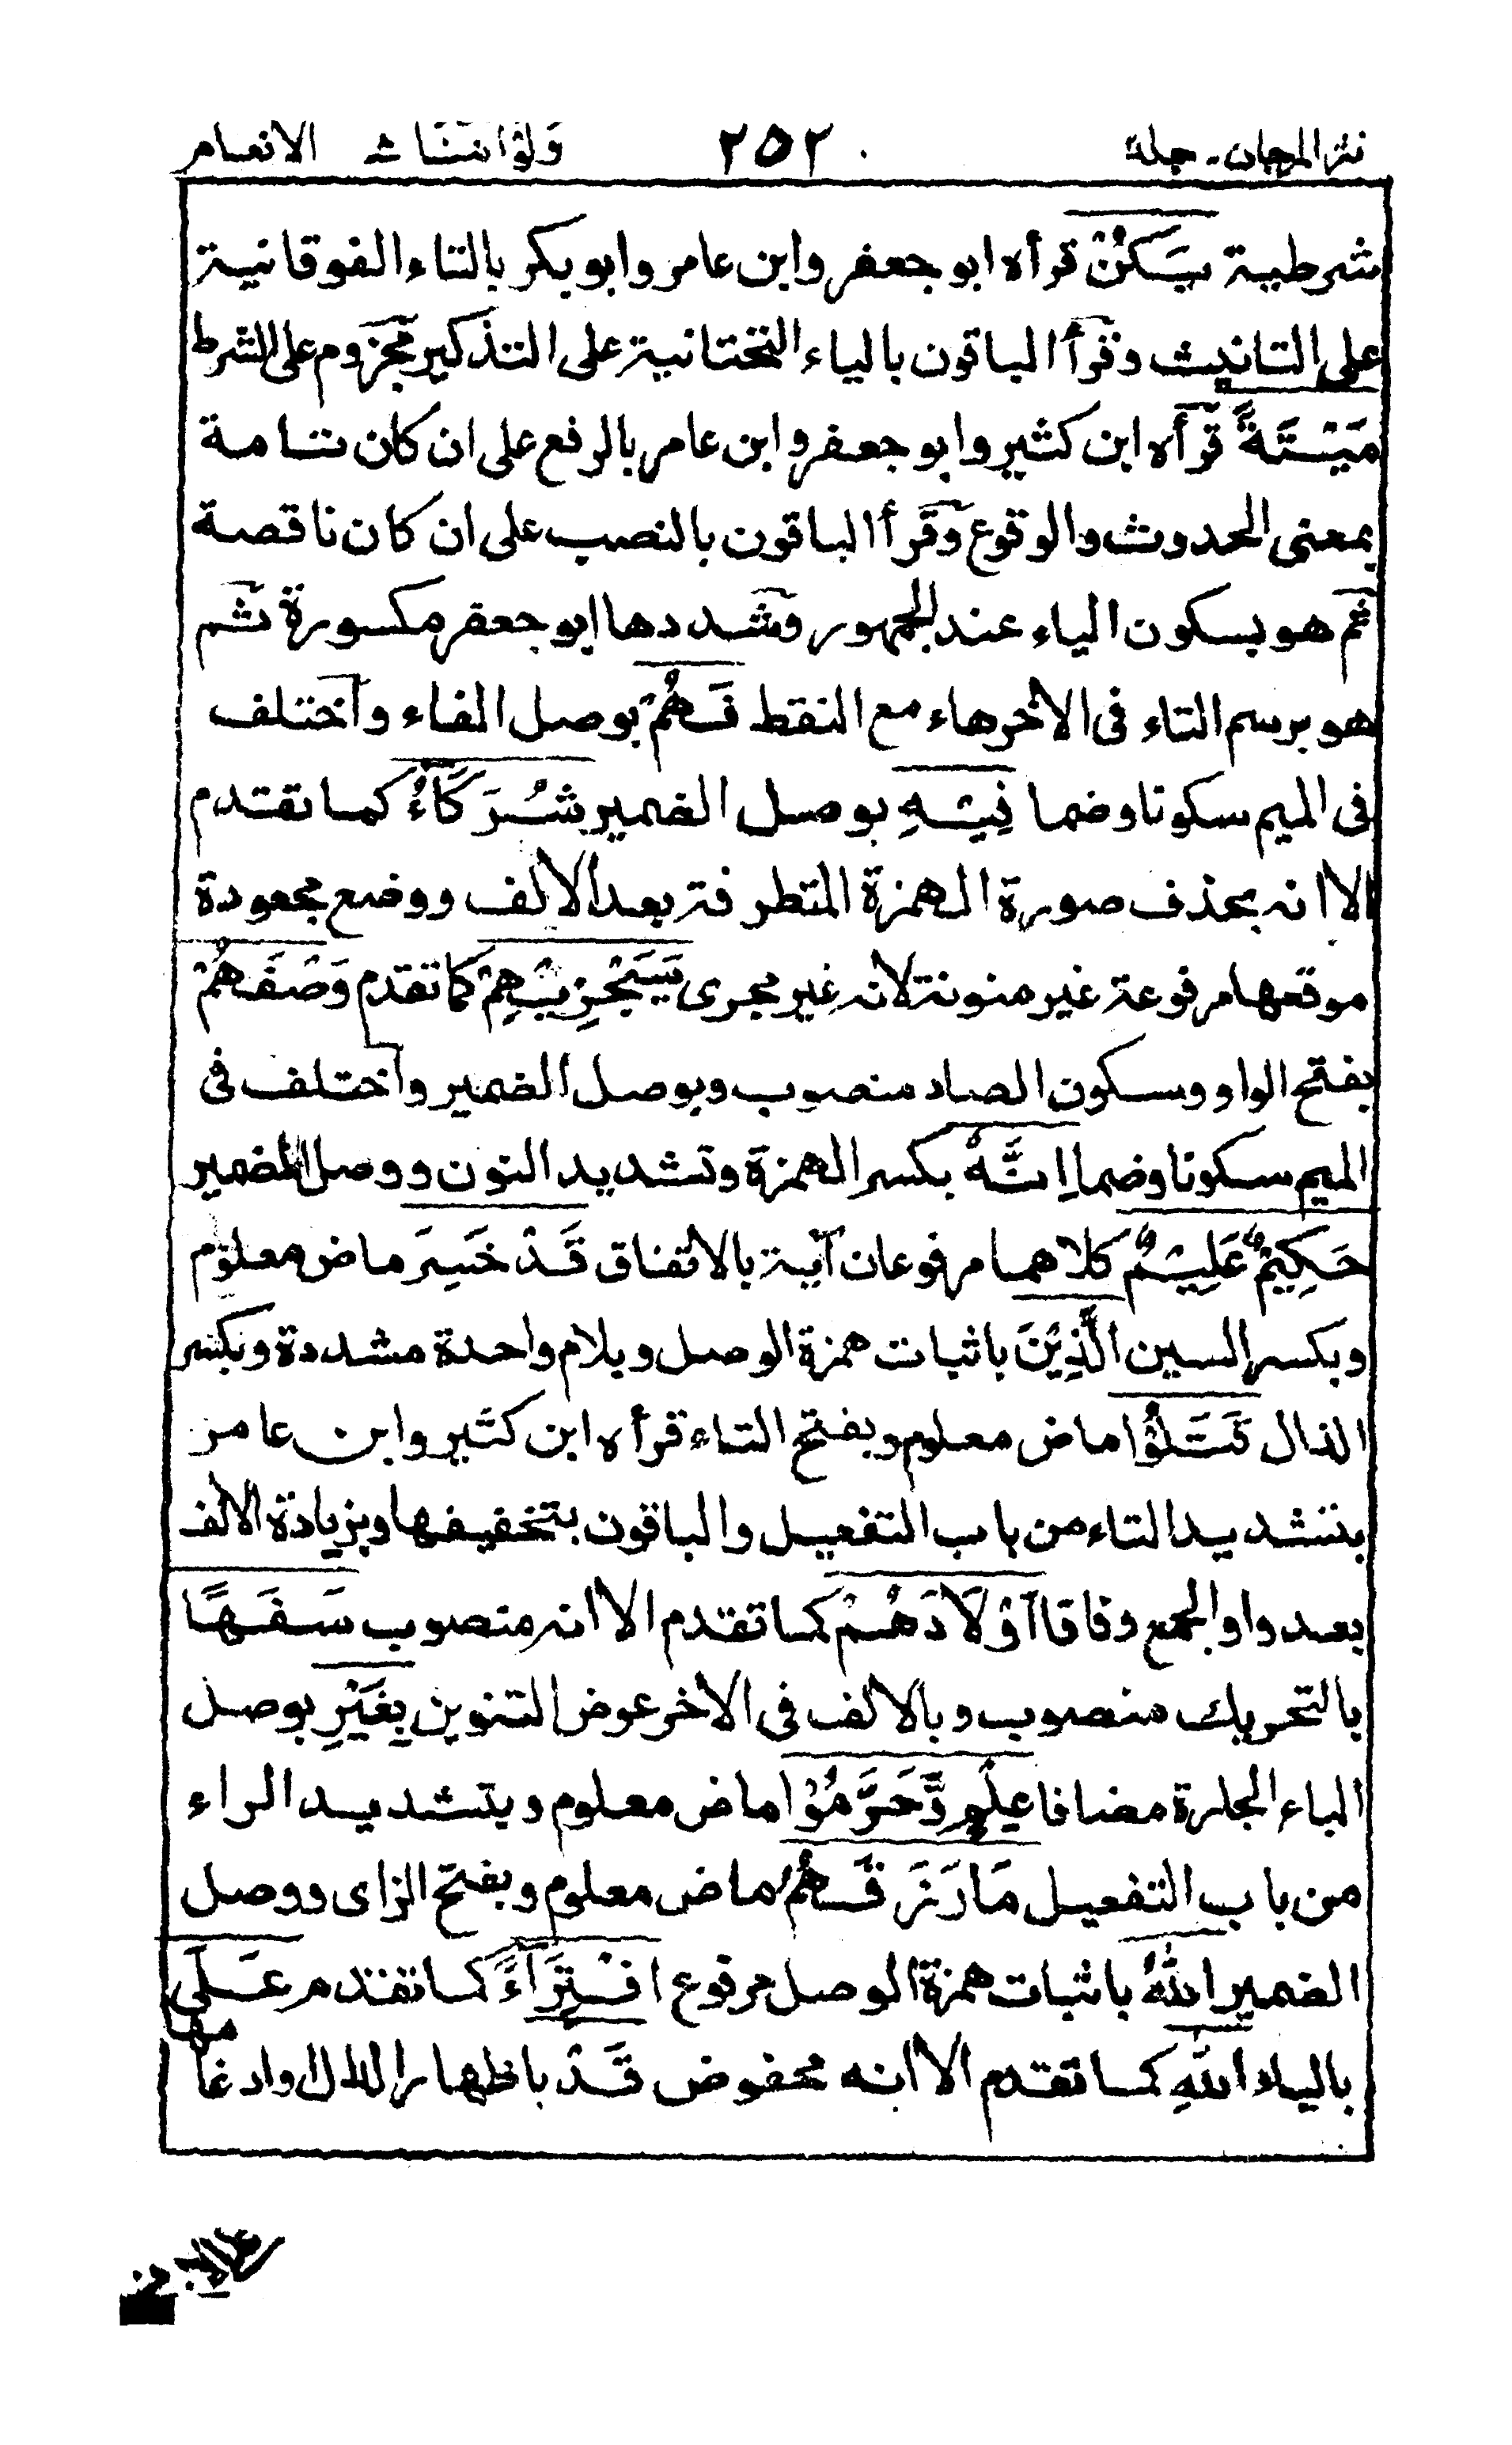 نثر المرجان - جلد ٢٥٢ ولو اننا ث الانعام
شرطية يَكُنْ قرأه ابو جعفر وابن عامر وابو بكر بالتاء الفوقانية
على التانيث وقرأ الباقون بالياء التحتانية على التذكير مجزوم على الشرط
مَيْتَةً قرأه ابن كثير وابو جعفر وابن عامر بالرفع على ان كان تامة
بمعنى الحدوث والوقوع وقرأ الباقون بالنصب على ان كان ناقصة
ثم هو بسكون الياء عند الجمهور وشددها ابو جعفر مكسورة ثم
هو برسم التاء فى الاخر هاء مع النقط فَهُمْ بوصل الفاء واختلف
فى الميم سكونا وضما فِيْهِ بوصل الضمير شُرَكَآءُ كما تقدم
الا انه بحذف صورة الهمزة المتطرفة بعد الالف ووضع مجعودة
موقعها مرفوعة غير منونة لانه غير مجرى سَيَجْزِيْهِمْ كما تقدم وَصْفَهُمْ
بفتح الواو وسكون الصاد منصوب وبوصل الضمير واختلف فى
الميم سكونا وضما اِنَّهُ بكسر الهمزة وتشديد النون ووصل الضمير
حَكِيْمٌ عَلِيْمٌ كلاهما مرفوعان آية بالاتفاق قَدْ خَسِرَ ماض معلوم
وبكسر السين الَّذِيْنَ باثبات همزة الوصل وبلام واحدة مشددة وبكسر
الذال قَتَلُوْا ماض معلوم وبفتح التاء قرأه ابن كثير وابن عامر
بتشديد التاء من باب التفعيل والباقون بتخفيفها وبزيادة الالف
بعد واو الجمع وفاقا اَوْلَادَهُمْ كما تقدم الا انه منصوب سَفَهًا
بالتحريك منصوب وبالالف فى الاخر عوض التنوين بِغَيْرِ بوصل
الباء الجارة مضافا عِلْمٍ وَّحَرَّمُوْا ماض معلوم وبتشديد الراء
من باب التفعيل مَا رَزَقَهُمُ ماض معلوم وبفتح الزاى ووصل
الضمير اللّٰهُ باثبات همزة الوصل مرفوع افْتِرَآءً كما تقدم عَلَى
بالياء اللّٰهِ كما تقدم الا انه مخفوض قَدْ باظهار الدال وادغامها